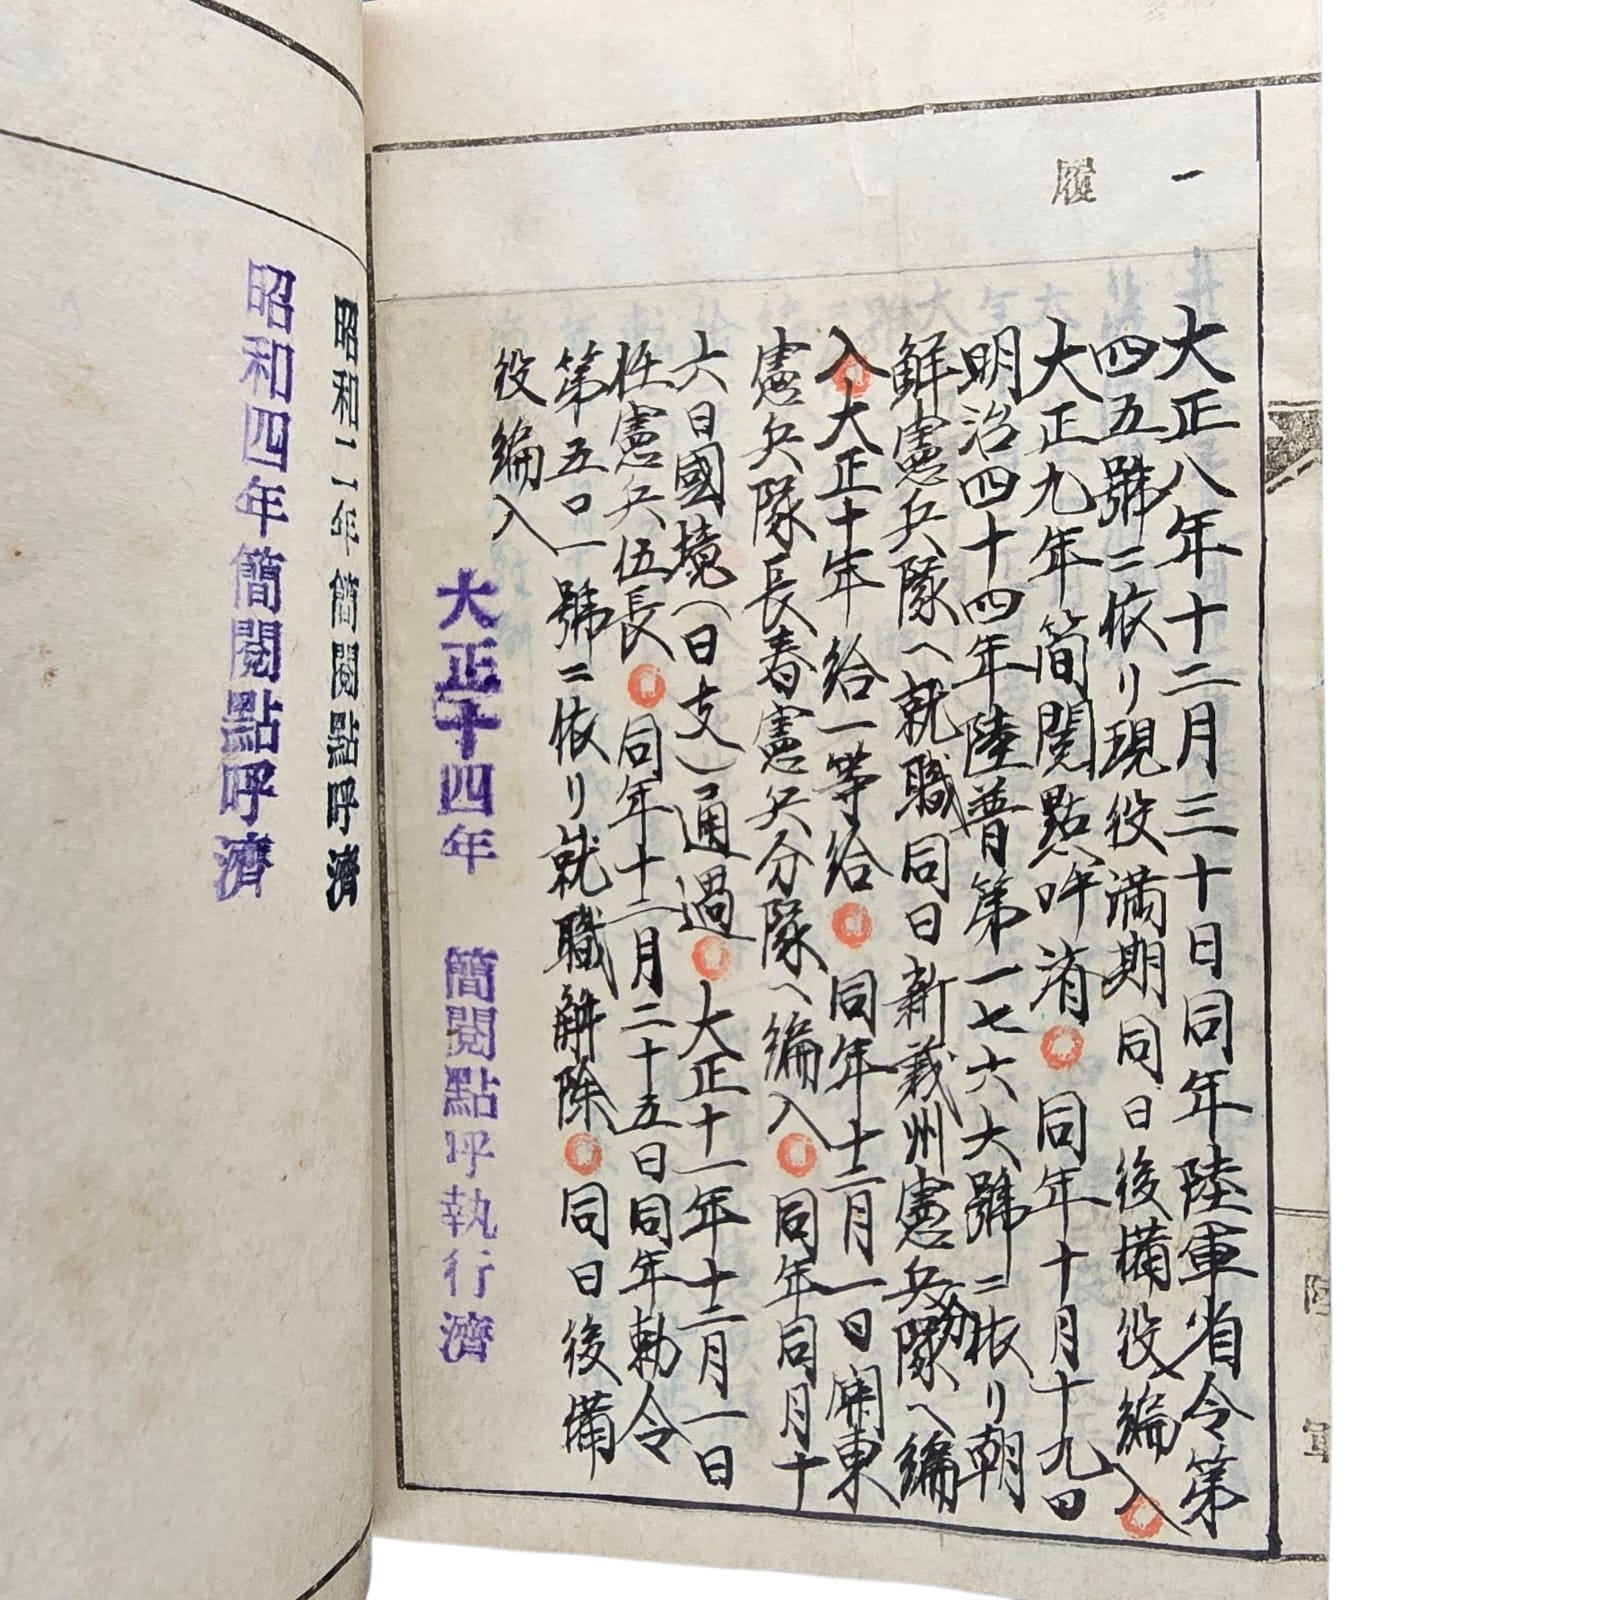 一
履
大正八年十二月三十日同年陸軍省令第
四五號ニ依リ現役満期同日後備役ヘ編入
大正九年簡閲點呼済同年十月十九日
明治四十四年陸普第一七六六號ニ依リ朝
鮮憲兵隊ヘ就職同日新義州憲兵分隊ヘ編
入大正十年給一等給同年十二月一日関東
憲兵隊長春憲兵分隊ヘ編入同年同月十
六日國境(日支)通過大正十一年十二月一日
任憲兵伍長同年十二月二十五日同年勅令
第五〇一號ニ依リ就職解除同日後備
役編入
大正十四年 簡閲點呼執行濟
昭和二年簡閲點呼濟
昭和四年簡閲點呼濟